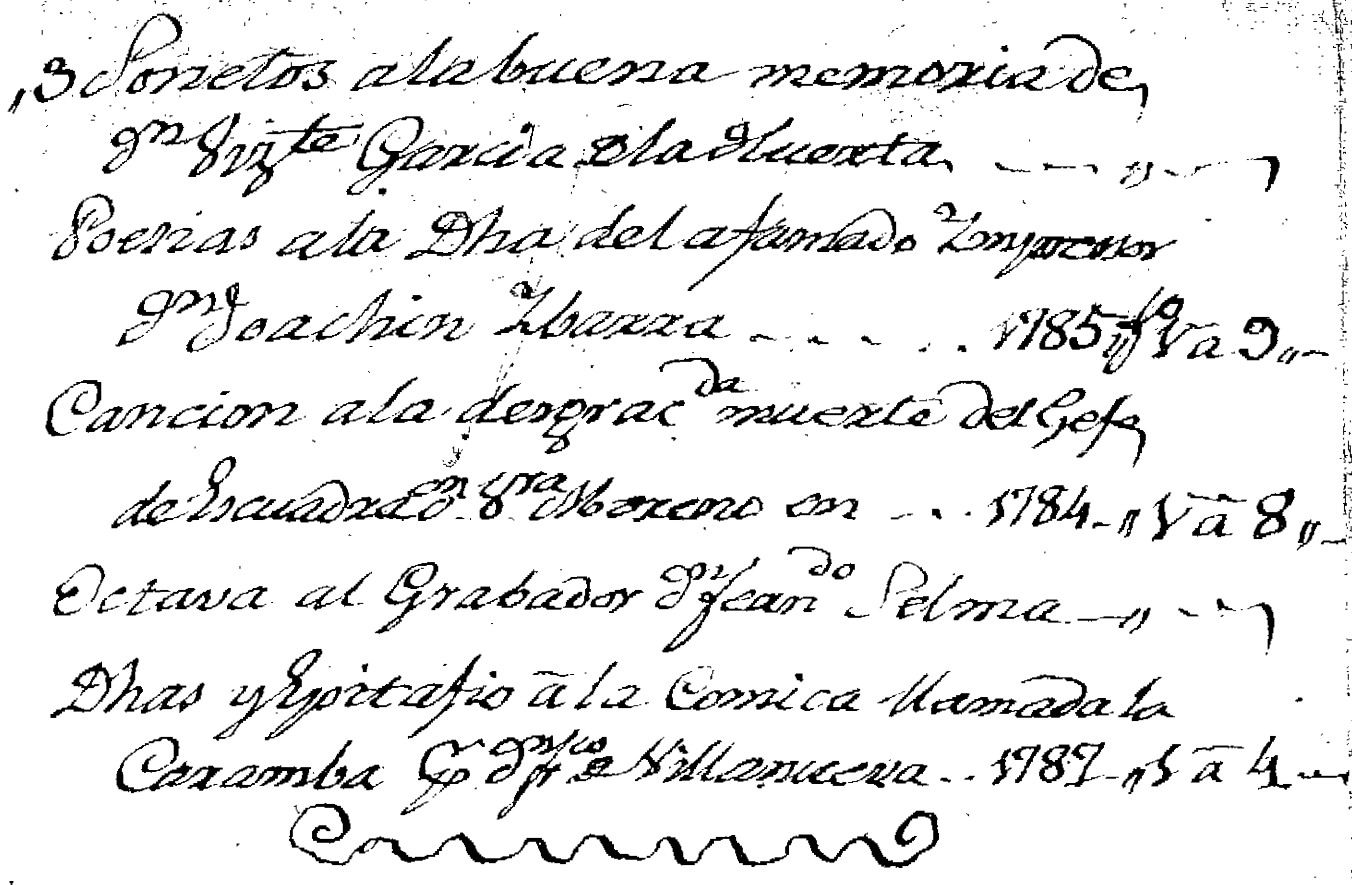 3 Sonetos ala buena memoria de
Dn Vizte Garcia de la Huerta
Poesias a la Dha del afamado Impresor
Dn Joachin Ibarra .... 1785 fo 1 a 9
Cancion a la desgracda muerte del Gefe
de Esquadra Moreno en ... 1784 1 a 8
Octava al Grabador Dn Fernando Selma
Dhas y Epitafio a la Comica llamada la
Caramba Dn Villanueva .. 1787 1 a 4